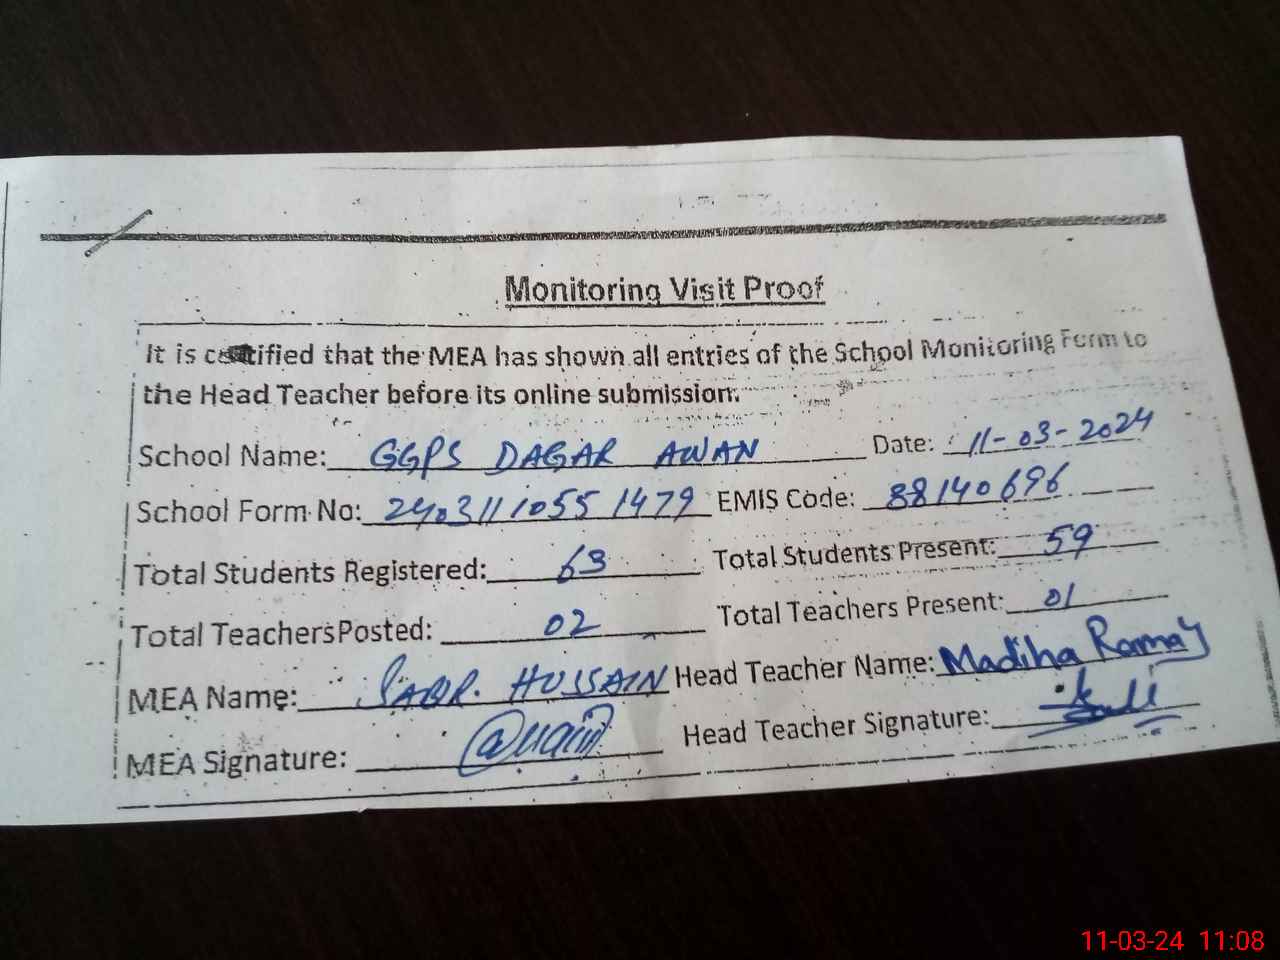 Monitoring Visit Proof
It is certified that the MEA has shown all entries of the School Monitoring Form to
the Head Teacher before its online submission.
School Name: GGPS DAGAR AWAN Date: 11-03-2024
School Form No: 2403111055 1479 EMIS Code: 88140696
Total Students Registered: 63 Total Students Present: 59
Total Teachers Posted: 02 Total Teachers Present: 01
MEA Name: HUSSAIN Head Teacher Name: Madiha Ramay
MEA Signature: Head Teacher Signature:
11-03-24 11:08